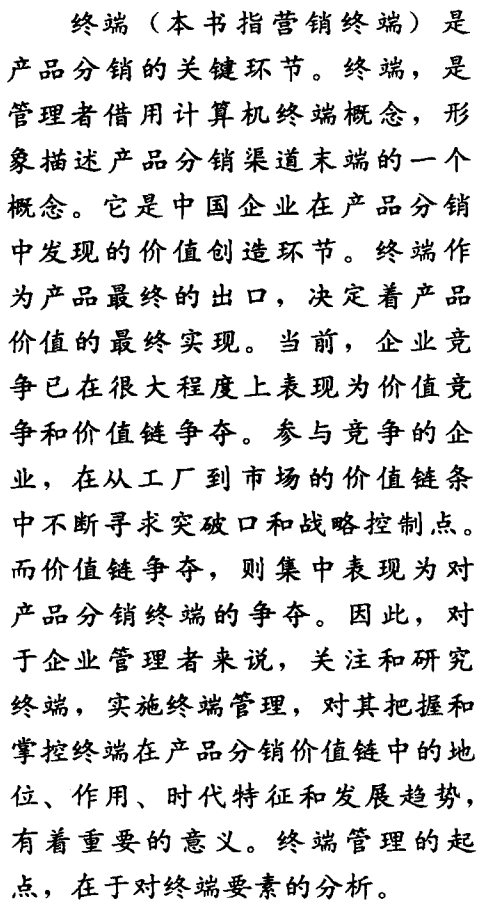 终端（本书指营销终端）是
产品分销的关键环节。终端，是
管理者借用计算机终端概念，形
象描述产品分销渠道末端的一个
概念。它是中国企业在产品分销
中发现的价值创造环节。终端作
为产品最终的出口，决定着产品
价值的最终实现。当前，企业竞
争已在很大程度上表现为价值竞
争和价值链争夺。参与竞争的企
业，在从工厂到市场的价值链条
中不断寻求突破口和战略控制点。
而价值链争夺，则集中表现为对
产品分销终端的争夺。因此，对
于企业管理者来说，关注和研究
终端，实施终端管理，对其把握和
掌控终端在产品分销价值链中的地
位、作用、时代特征和发展趋势，
有着重要的意义。终端管理的起
点，在于对终端要素的分析。